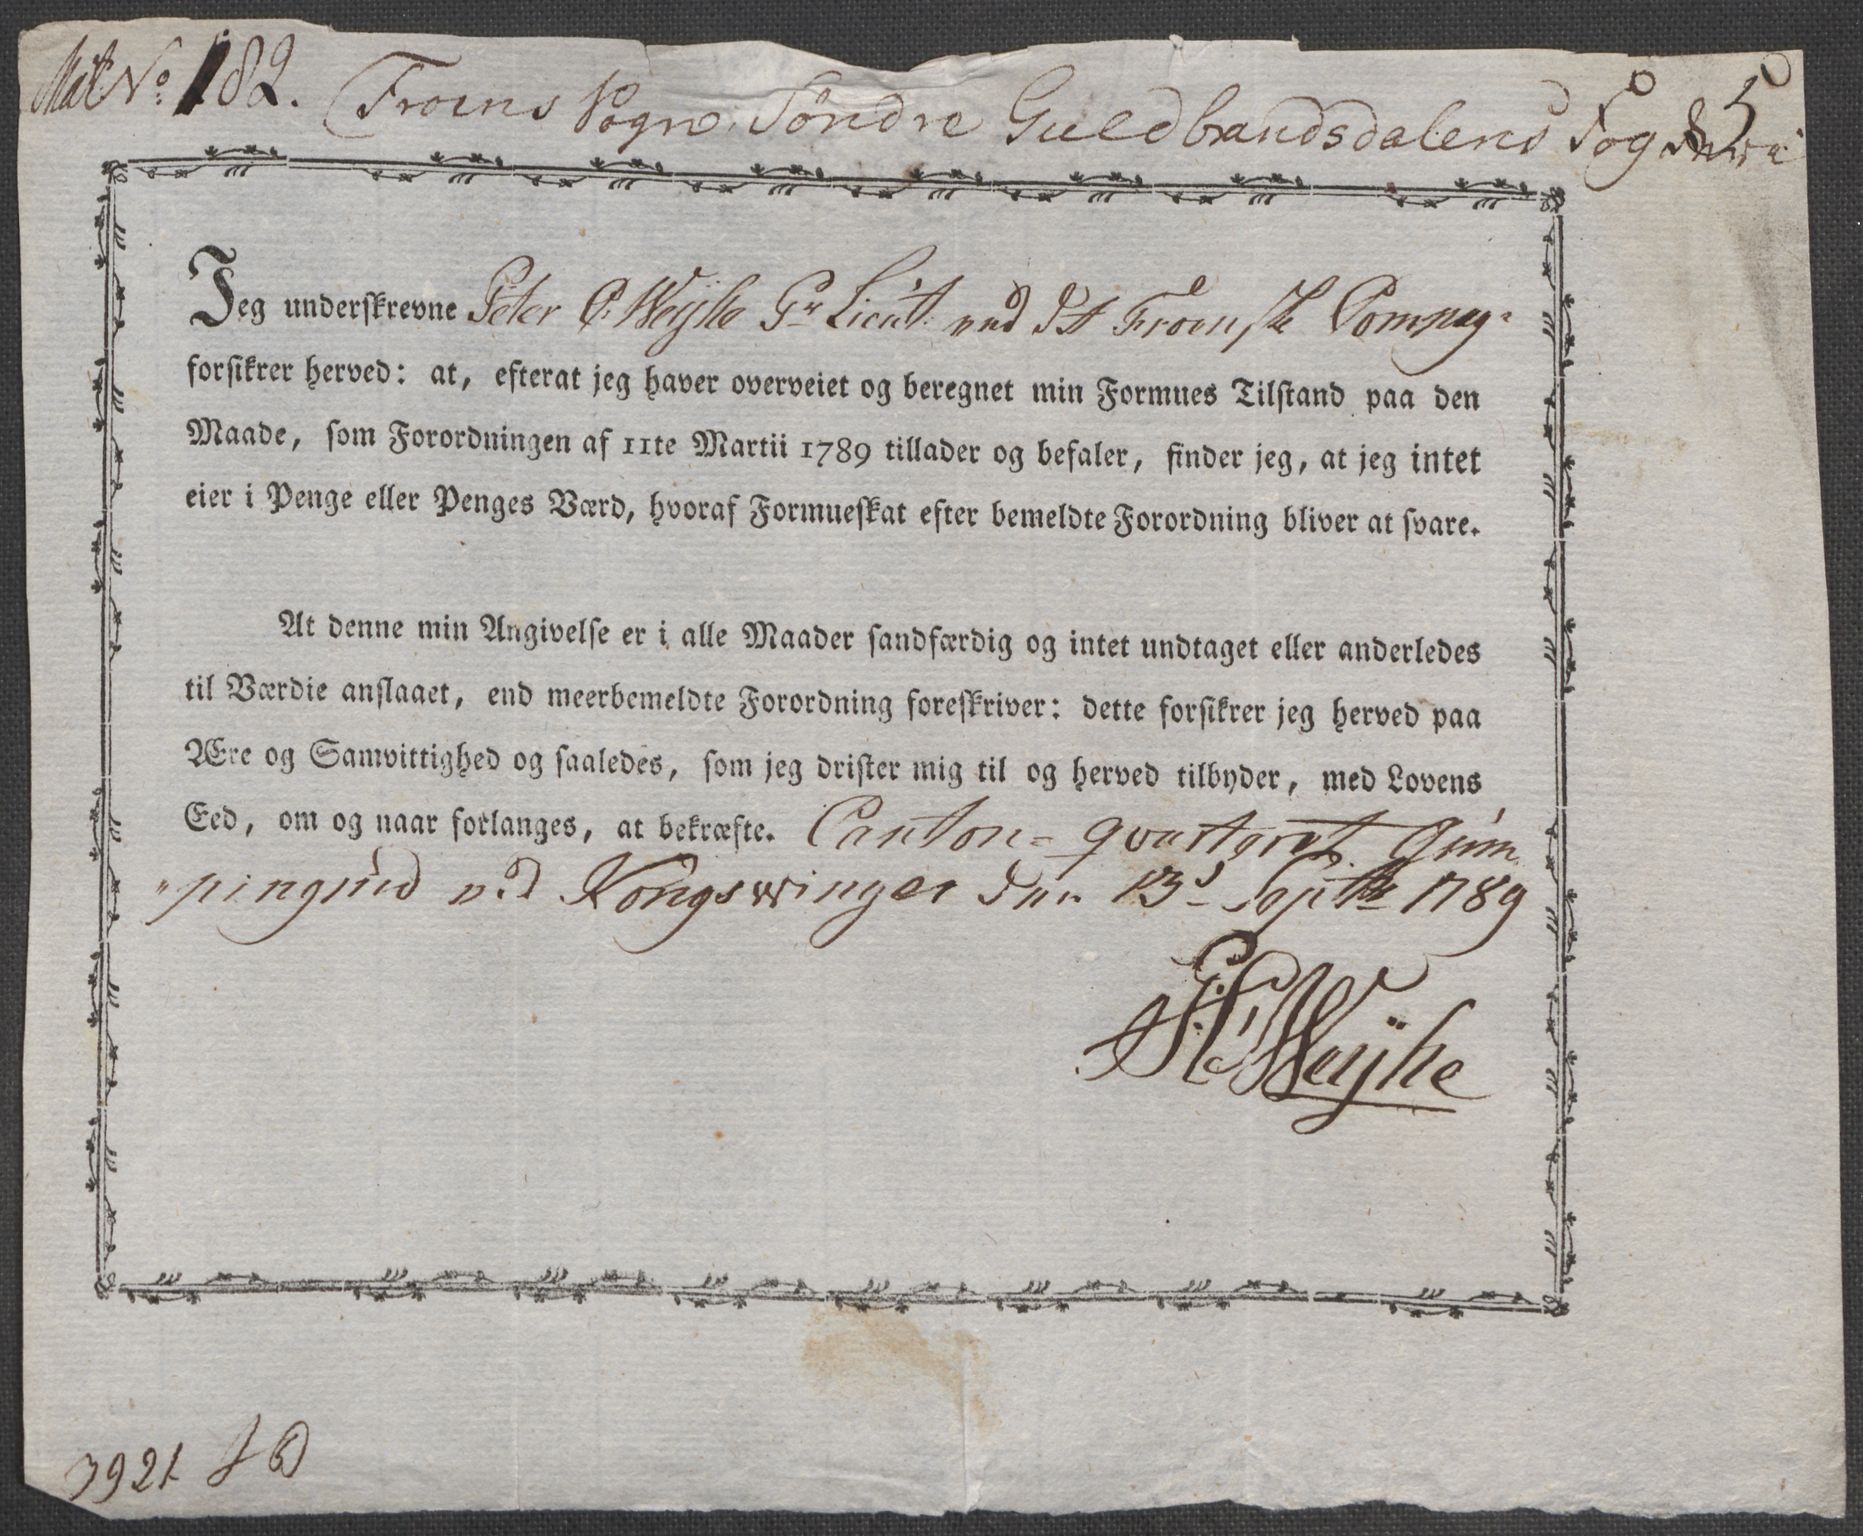 Mat No: 182. Froens Sogn. Söndre Guldbrandsdalens Fogderie 5
Jeg underskrevne Peter C. Weyhe Pr Lieut: ved det Froenske Compag-
forsikrer herved: at, efterat jeg haver overveiet og beregnet min Formues Tilstand paa den
Maade, som Forordningen af 11te Martii 1789 tillader og befaler, finder jeg, at jeg intet
eier i Penge eller Penges Værd, hvoraf Formueskat efter bemeldte Forordning bliver at svare.
At denne min Angivelse er i alle Maader sandfærdig og intet undtaget eller anderledes
til Værdie anslaaet, end meerbemeldte Forordning foreskriver: dette forsikrer jeg herved paa
Ære og Samvittighed og saaledes, som jeg drister mig til og herved tilbyder, med Lovens
Eed, om og naar forlanges, at bekræfte. Canton-qvarteret Gum
pingrud ved Kongswinger den 13d Septbr 1789
Weÿhe
3921